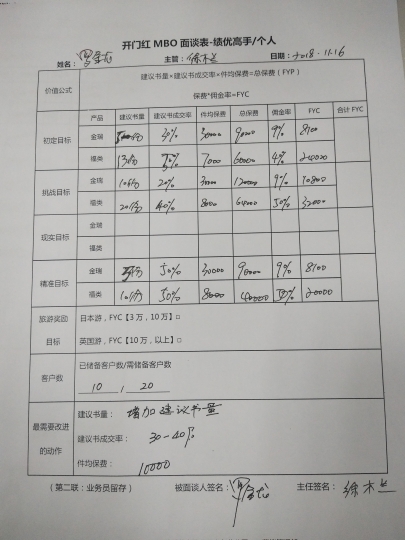 开门红 MBO 面谈表-绩优高手/个人
姓名： 主管：徐木兰 日期：2018.11.16
价值公式
建议书量×建议书成交率×件均保费=总保费（FYP）
保费*佣金率=FYC
产品 建议书量 建议书成交率 件均保费 总保费 佣金率 FYC 合计 FYC
初定目标
金瑞 30% 30000 90000 9% 8100
福类 7000 60000 24000
挑战目标
金瑞 10份 20% 120000 9% 10800
福类 20份 40% 8000 64000 50% 32000
现实目标
金瑞
福类
精准目标
金瑞 50% 30000 90000 9% 8100
福类 10份 50% 8000 40000 20000
旅游奖励
目标
日本游，FYC【3 万，10 万】□
英国游，FYC【10 万，以上】□
客户数
已储备客户数/需储备客户数
10 / 20
最需要改进
的动作
建议书量： 增加建议书量
建议书成交率： 30-40%
件均保费： 10000
（第二联：业务员留存） 被面谈人签名： 主任签名： 徐木兰